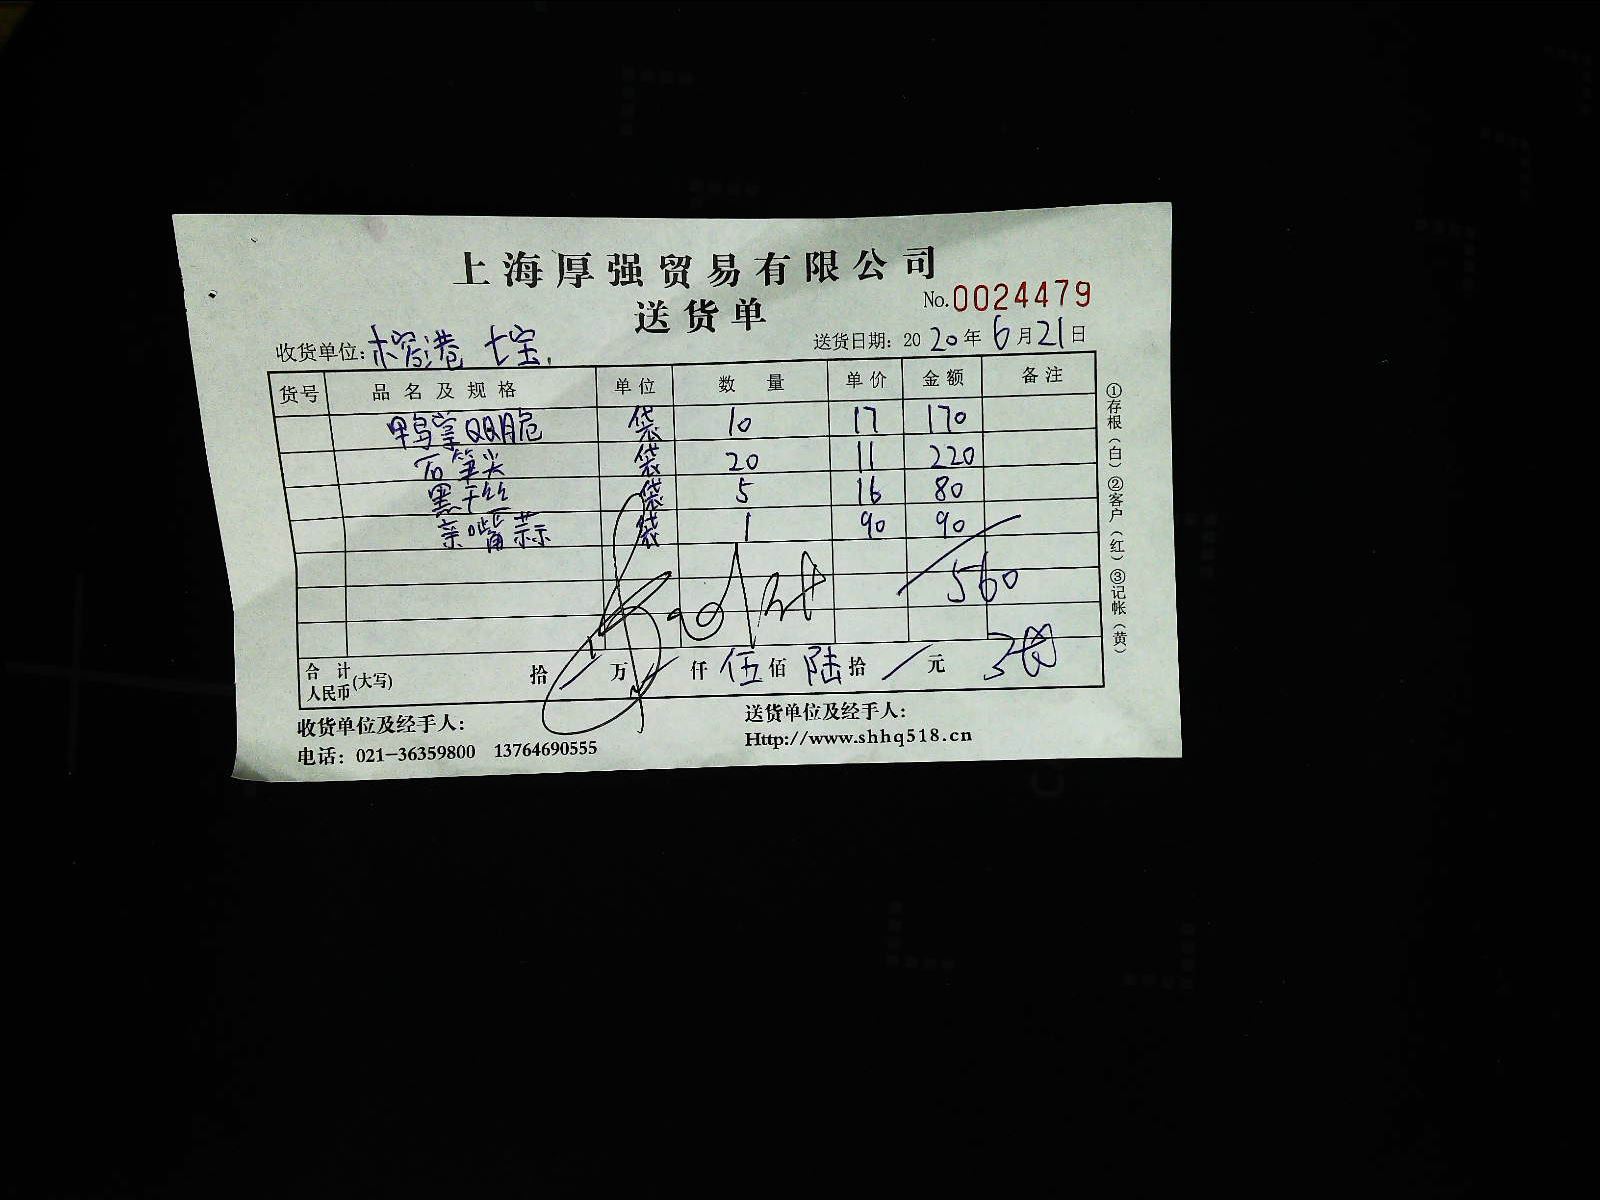 上海厚强贸易有限公司
送货单
No.0024479
收货单位:榕港 七宝.
送货日期: 2020年6月21日
货号 品名及规格 单位 数量 单价 金额 备注
鸭掌QQ脆 袋 10 17 170
石笋尖 袋 20 11 220
黑千丝 袋 5 16 80
亲嘴蒜 袋 1 90 90
560
合计人民币(大写) 拾/万/仟伍佰陆拾/元
收货单位及经手人:
送货单位及经手人:
电话: 021-36359800 13764690555
Http://www.shhq518.cn
①存根(白)②客户(红)③记帐(黄)